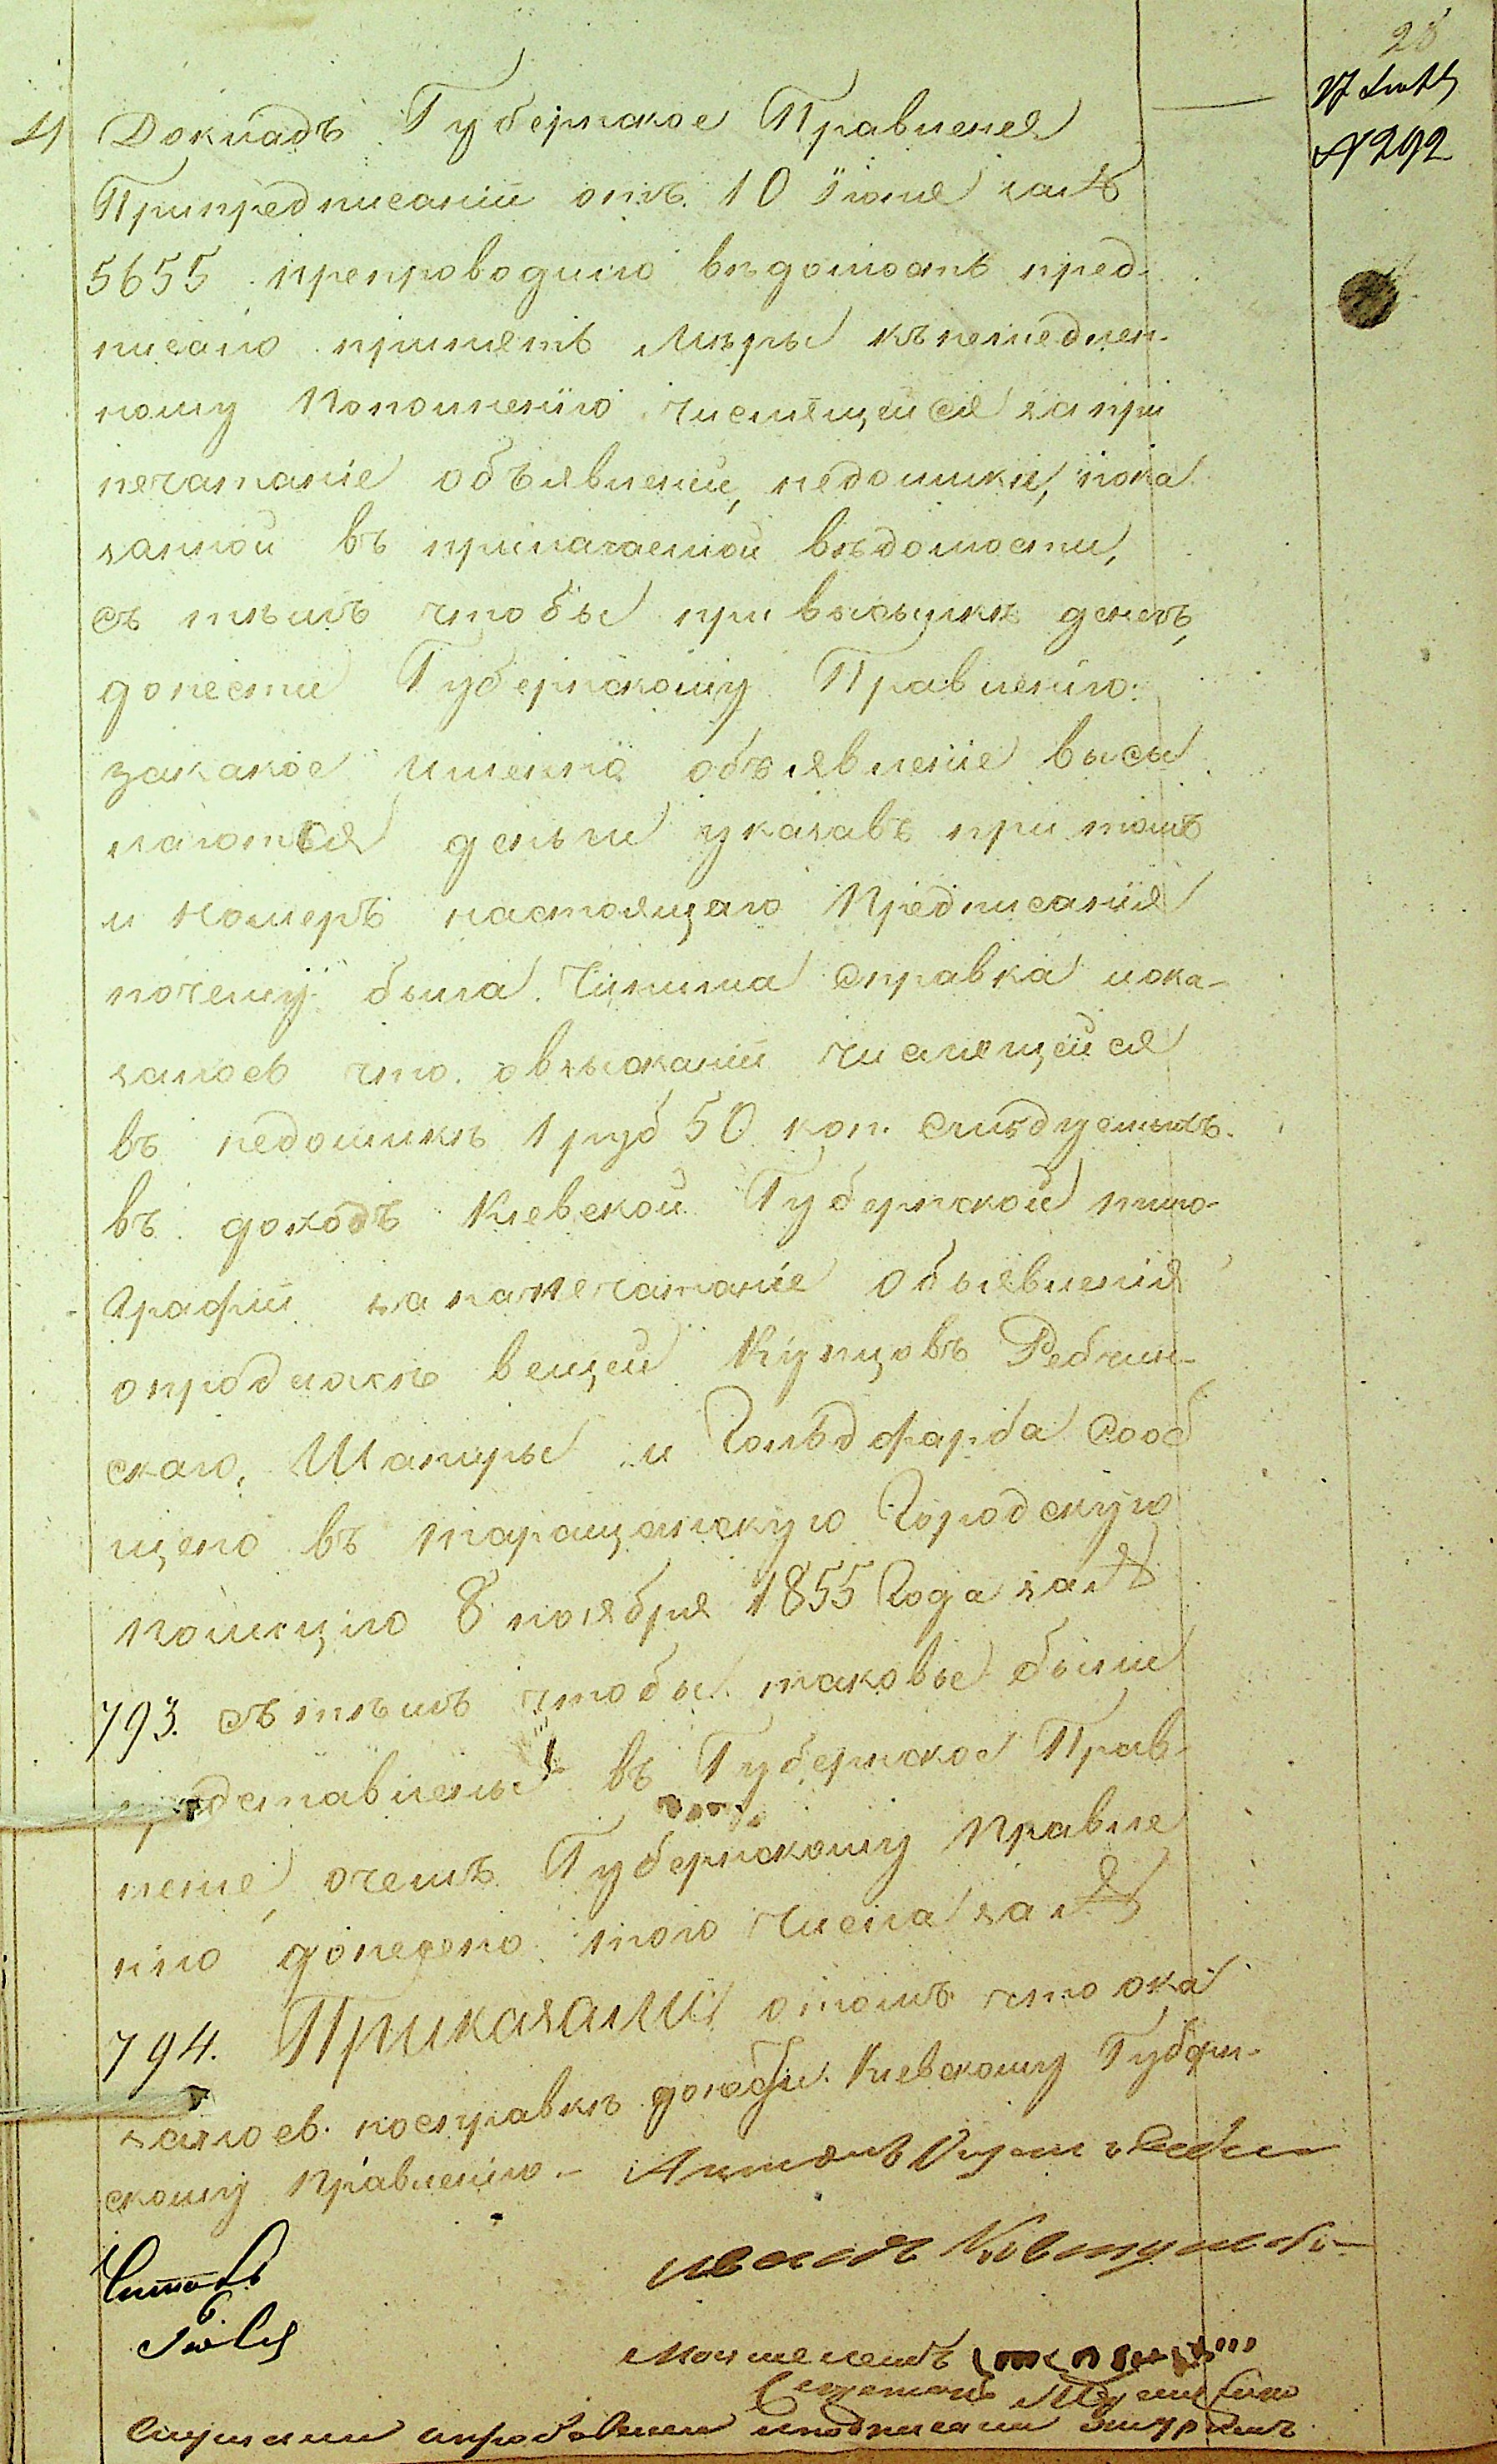 28
27 Июля
№ 292
4 Докладъ Губернское Правленея
Припредписаніи отъ 10 Іюня за №
5655 препроводило вѣдомость пред-
писало принять мѣры къ немедлен-
ному пополненію числящейся запри
печатаніе объявленій, недоимки, пока
занной въ прилагаемой вѣдомости,
съ тѣмъ чтобы при высылкѣ денегъ,
донести Губернскому Правленію:
закакое именно объявленіе высы
лаются деньги указавъ при томъ
и номеръ настоящаго Предписанія
почему была Чинима справка и ока-
залось что овзысканіи числящейся
въ недоимкѣ 1 руб 50 коп. слѣдуемыхъ
въ доходъ Кіевской Губернской типо-
графіи за напечатаніе объявленія
опродажѣ вещей Купцовъ Ребчин-
скаго, Шапиры и Гольдфарба сооб
щено въ таращанскую Городскую
полицію 8 ноября 1855 Года за №
793. сътѣмъ чтобы таковые были
представлены въ Губернское Прав-
ление, очемъ Губернскому Правле
нію донесено того числа за №
794. Приказали, отомъ что ока
залось посправкѣ донести Кіевскому Губерн-
скому Правленію. —
Иванъ
Читалъ
Слушали апробовали иподписали журналъ